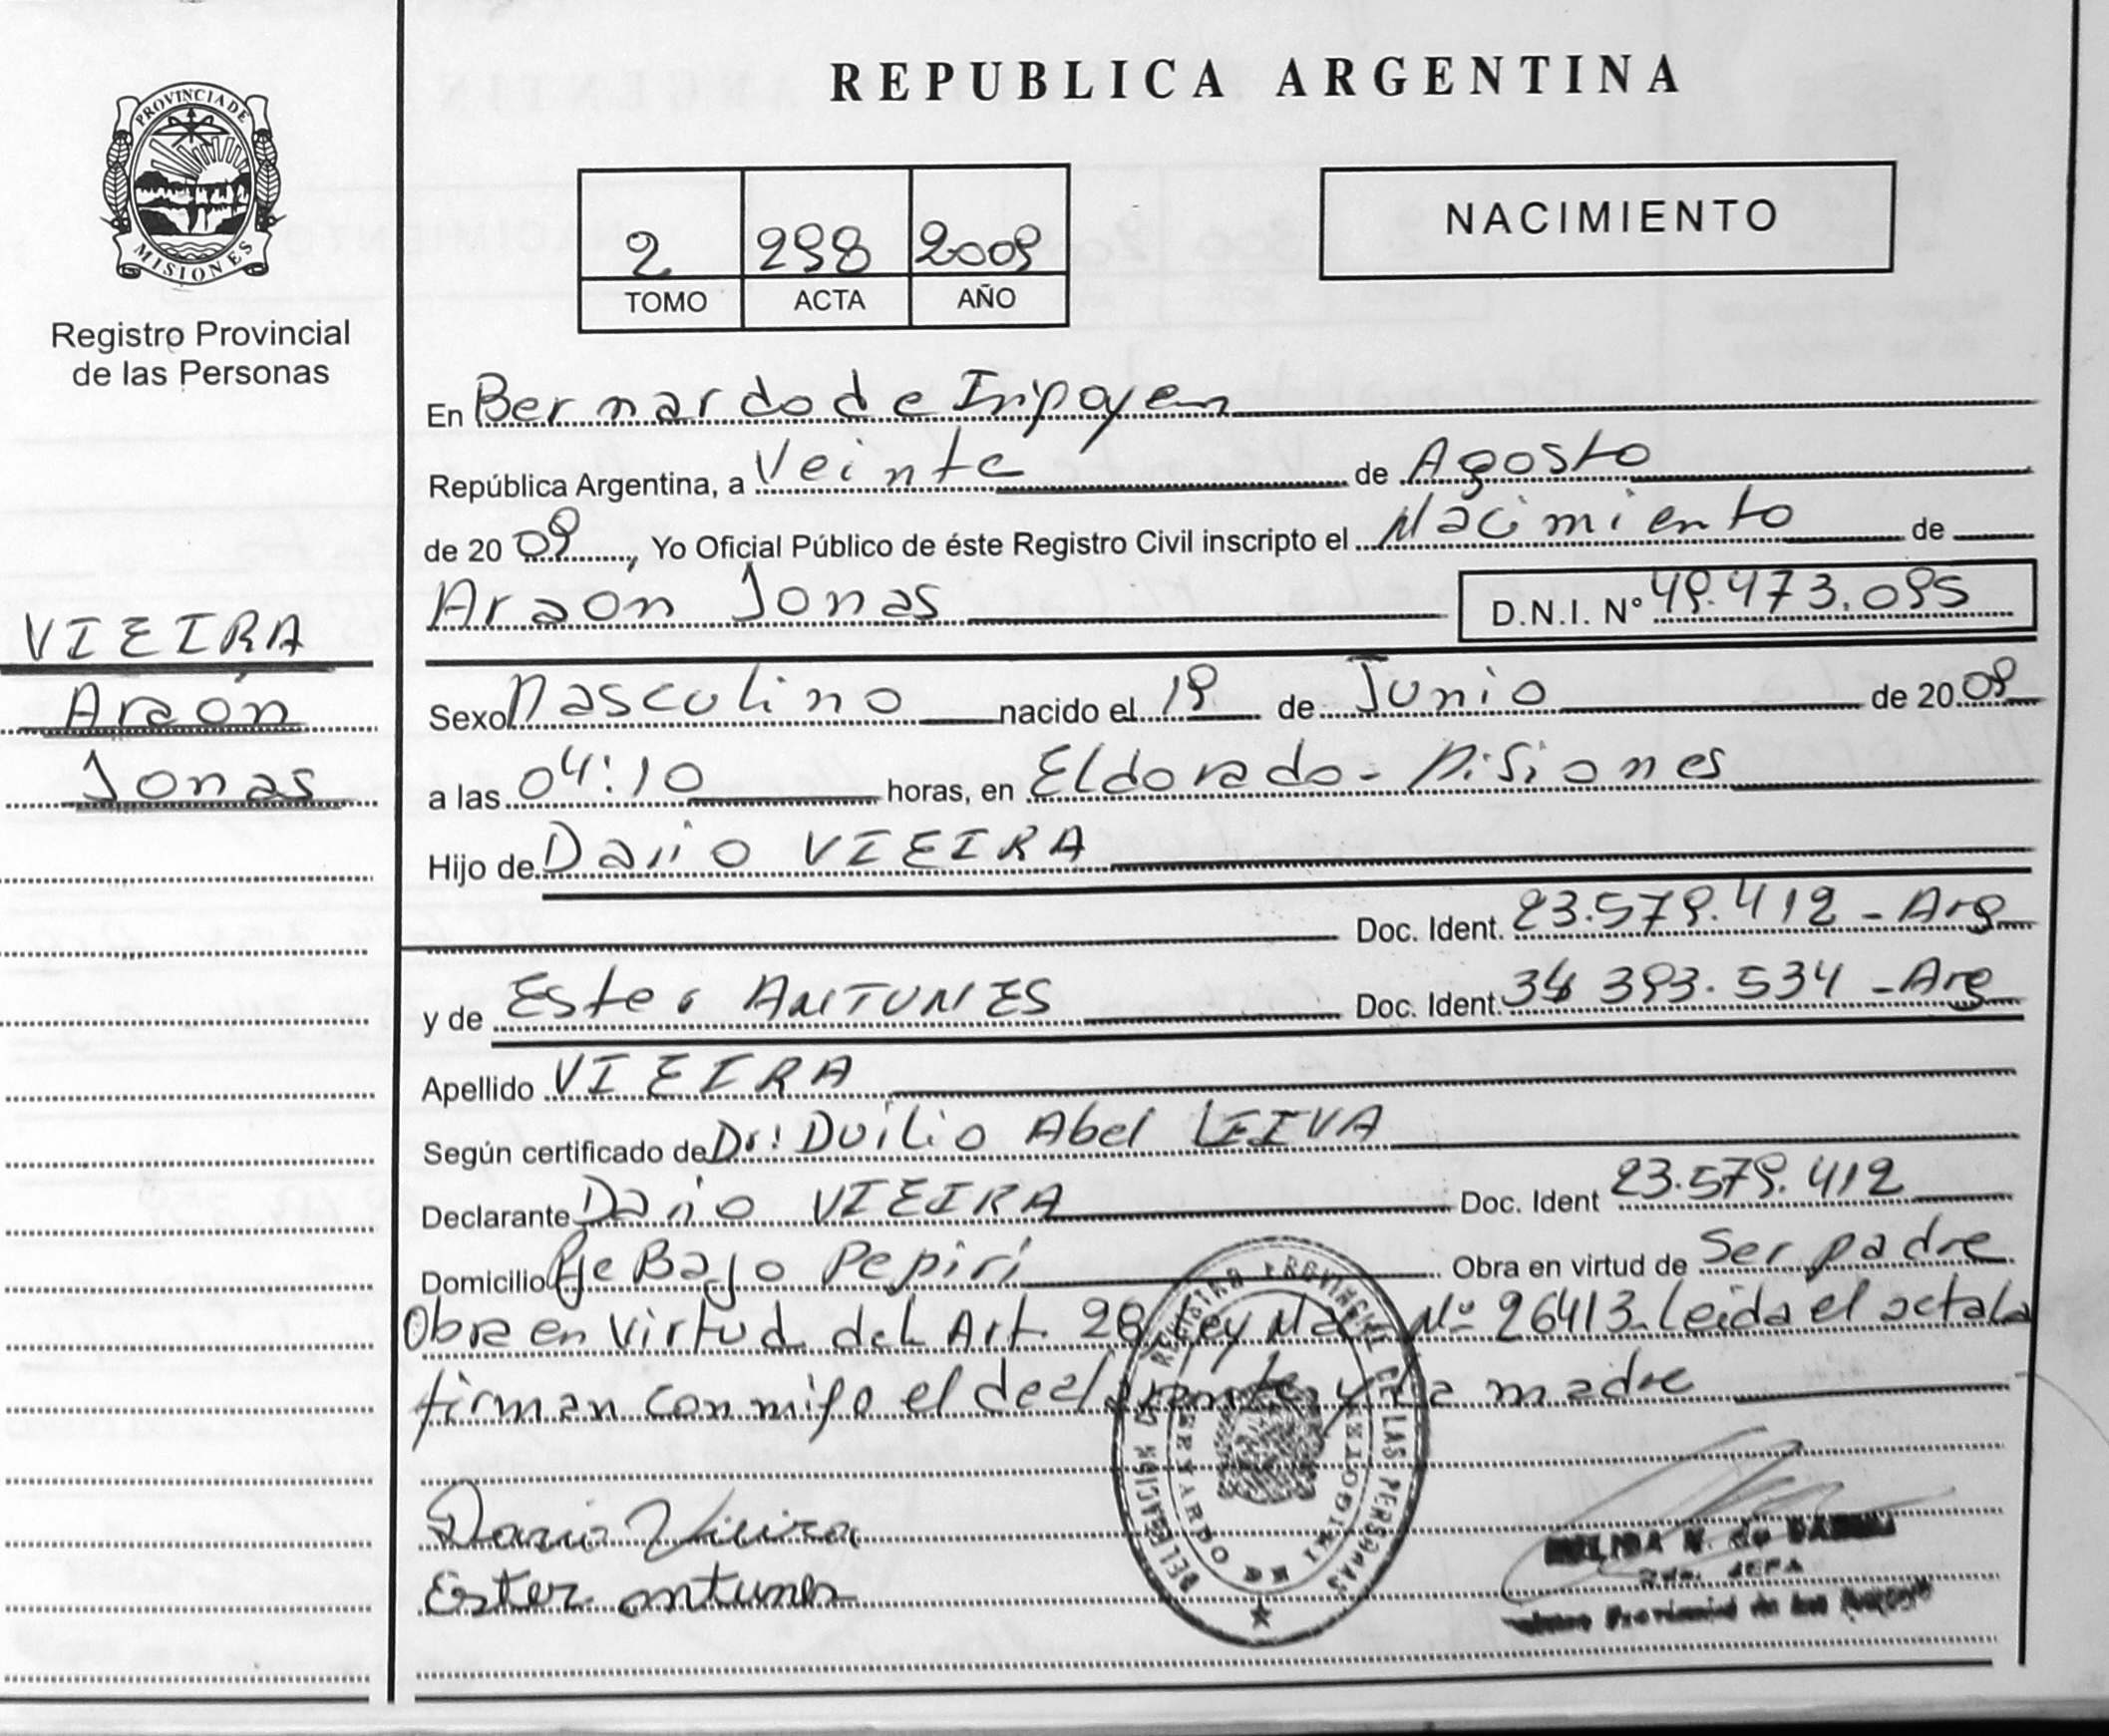 REPUBLICA ARGENTINA
PROVINCIA DE MISIONES
Registro Provincial
de las Personas
2 298 2009
TOMO ACTA AÑO
NACIMIENTO
En Bernardo de Irigoyen
República Argentina, a Veinte de Agosto
de 20 09, Yo Oficial Público de éste Registro Civil inscripto el Nacimiento de
Araón Jonas D.N.I. Nº 49.473.095
VIEIRA
Araón
Jonas
Sexo Masculino nacido el 19 de Junio de 20 09
a las 04:10 horas, en Eldorado - Misiones
Hijo de Dario VIEIRA
Doc. Ident. 23.579.412 - Arg
y de Ester ANTUNES Doc. Ident. 34 393.534 - Arg
Apellido VIEIRA
Según certificado de Dr: Duilio Abel LEIVA
Declarante Dario VIEIRA Doc. Ident 23.579.412
Domicilio Pje Bajo Pepiri Obra en virtud de Ser padre
Obra en virtud del Art. 28 Ley Nac Nº 26413. Leida el acta la
firman conmigo el declarante y la madre
Dario Vieira
Ester antunes
REGISTRO PROVINCIAL DE LAS PERSONAS
BERNARDO IRIGOYEN
de
JEFA
Provincial de las